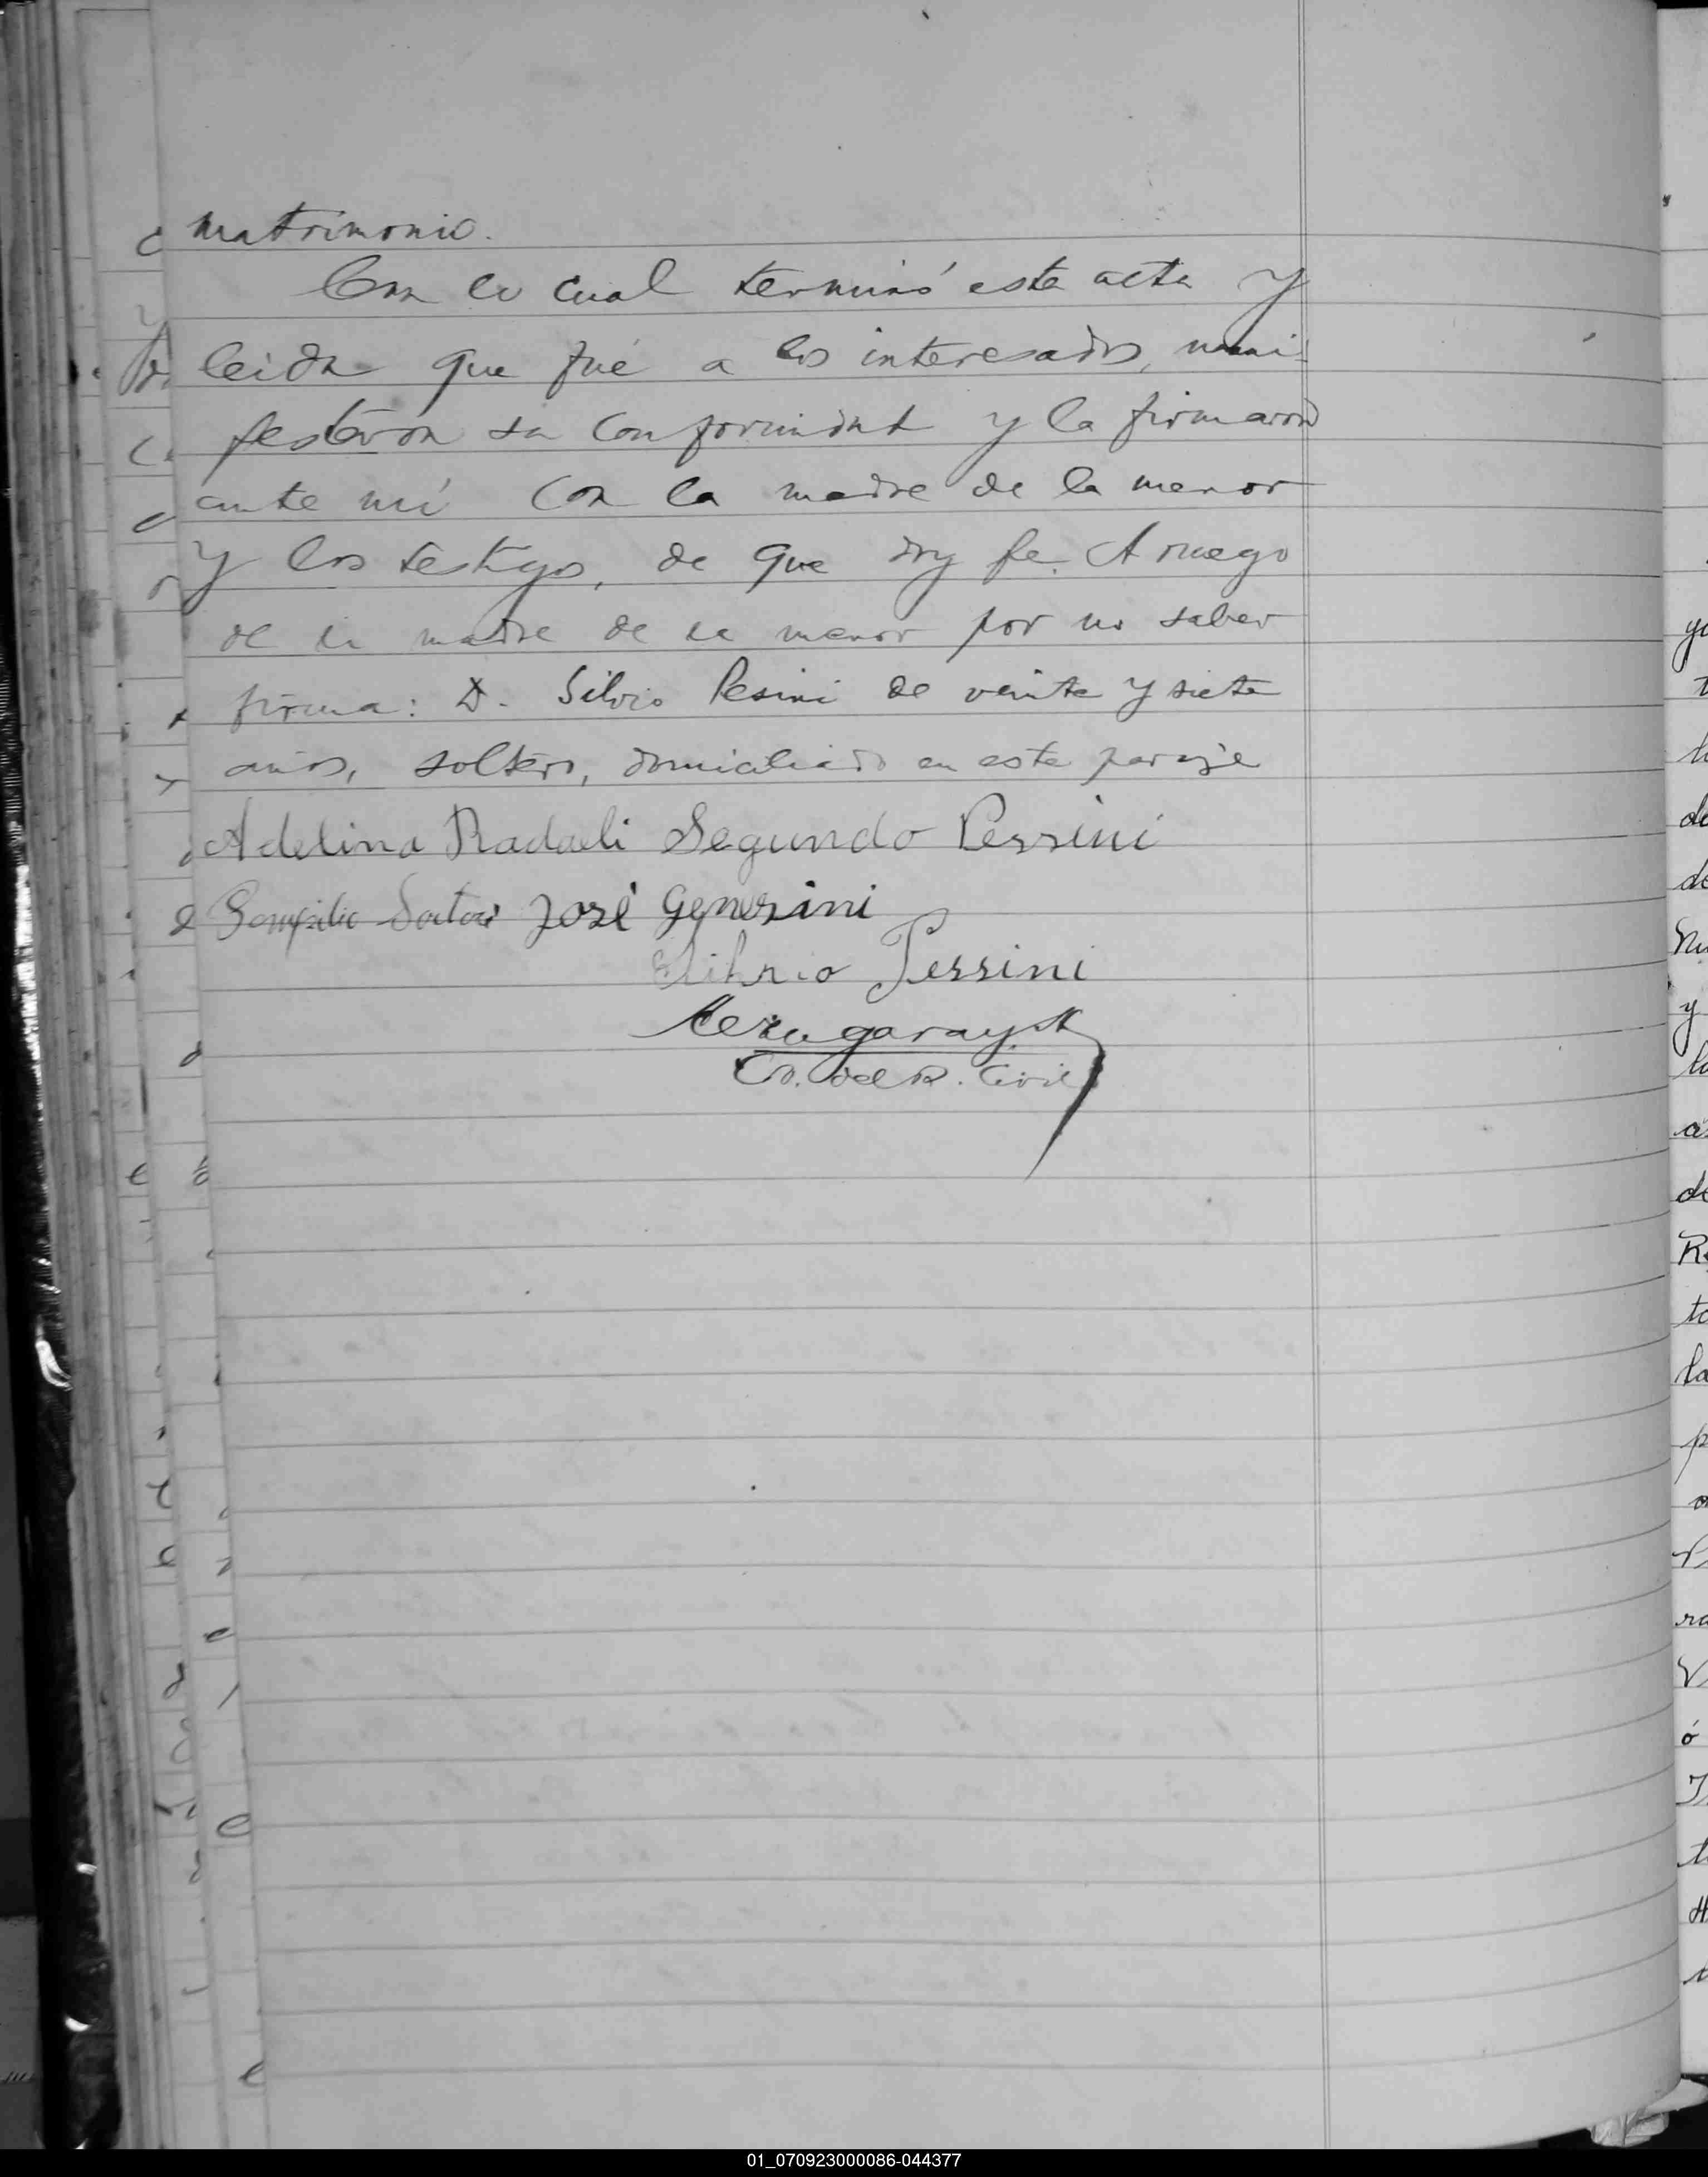 matrimonio.
Con lo cual terminó esta acta y
leida que fué a los interesados, mani-
festaron su conformidad y la firmaron
ante mí con la madre de la menor
y los testigos, de que doy fe. A ruego
de la madre de la menor por no saber
firma: D. Silvio Pesini de veinte y siete
años, soltero, domiciliado en este paraje
Adelina Radaeli Segundo Perssini
José Genersini
Silvrio Perssini
del R. Civil
01_070923000086-044377